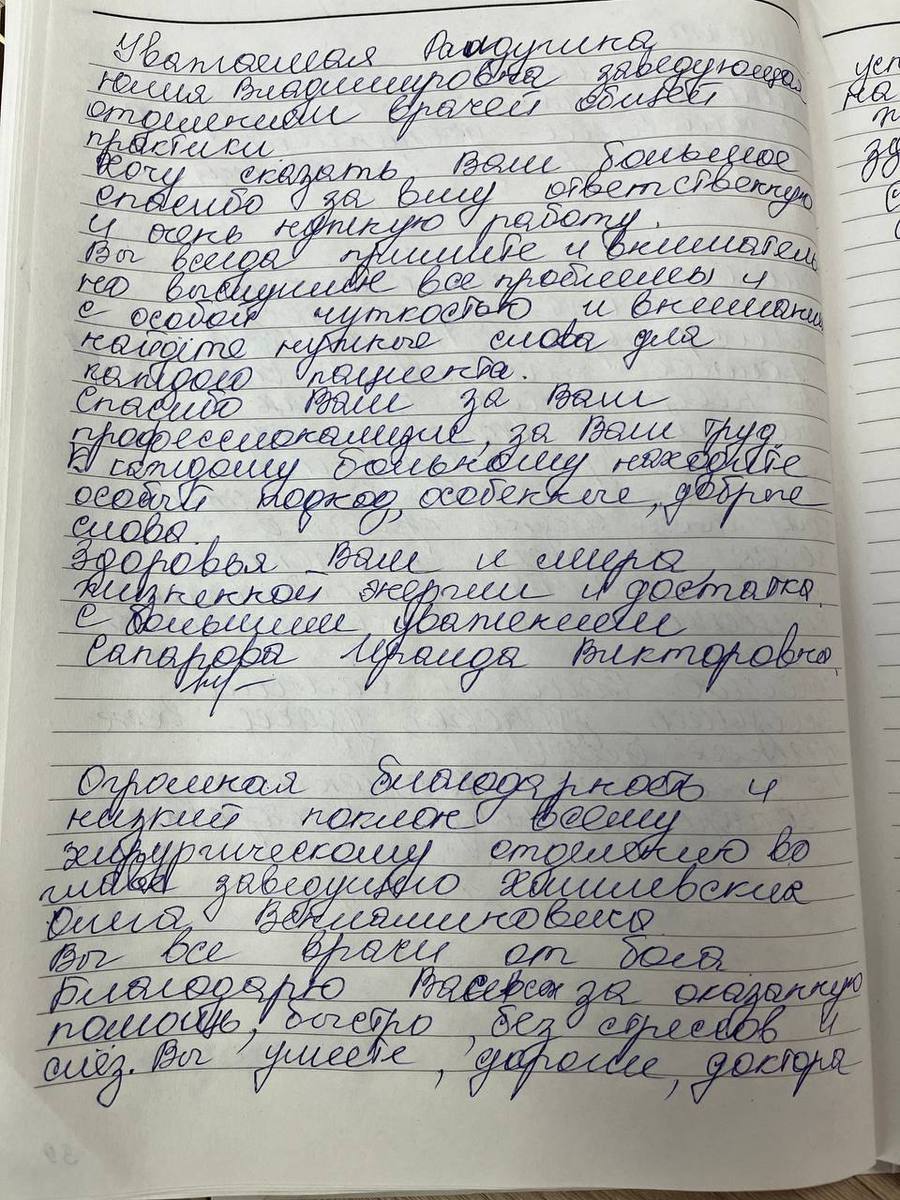 Уважаемая Радугина
Юлия Владимировна заведующая
отделением врачей общей
практики
Хочу сказать Вам большое
спасибо за вашу ответственную
и очень нужную работу.
Вы всегда примите и вниматель
но выслушите все проблемы и
с особой чуткостью и внимание
найдёте нужные слова для
каждого пациента.
Спасибо Вам за Ваш
профессионализм, за Ваш труд
К каждому больному находите
особый подход, особенные, добрые
слова.
Здоровья Вам и мира
жизненной энергии и достатка.
С большим уважением
Сапарова Ираида Викторовна
Огромная благодарность и
низкий поклон всему
хирургическому отделению во
главе заведущего
Олега Вениаминовича
Вы все врачи от бога
Благодарю Вас всех за оказанную
помощь, быстро, без стрессов и
слёз. Вы умеете, дорогие, доктора
усп
на
зд